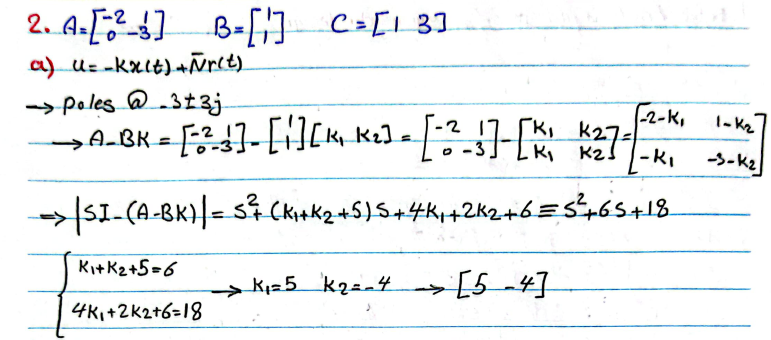 2. A=[-2 1; 0 -3] B=[1; 1] C=[1 3]
a) u=-Kx(t)+N̄r(t)
→ poles @ -3±3j
→ A-BK = [-2 1; 0 -3] - [1; 1][K₁ K₂] = [-2 1; 0 -3] - [K₁ K₂; K₁ K₂] = [-2-K₁ 1-K₂; -K₁ -3-K₂]
⇒ |SI-(A-BK)| = S²+(K₁+K₂+5)S+4K₁+2K₂+6 ≡ S²+6S+18
{ K₁+K₂+5=6
4K₁+2K₂+6=18 → K₁=5 K₂=-4 → [5 -4]